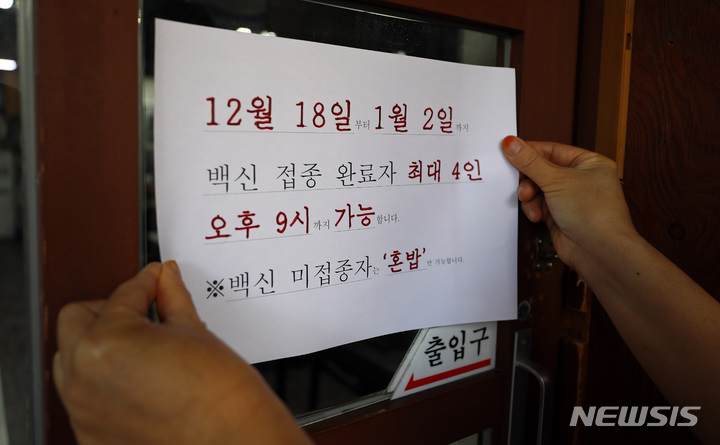 12월 18일부터 1월 2일까지
백신 접종 완료자 최대 4인
오후 9시까지 가능합니다.
※백신 미접종자는 '혼밥'만 가능합니다.
출입구
NEWSIS